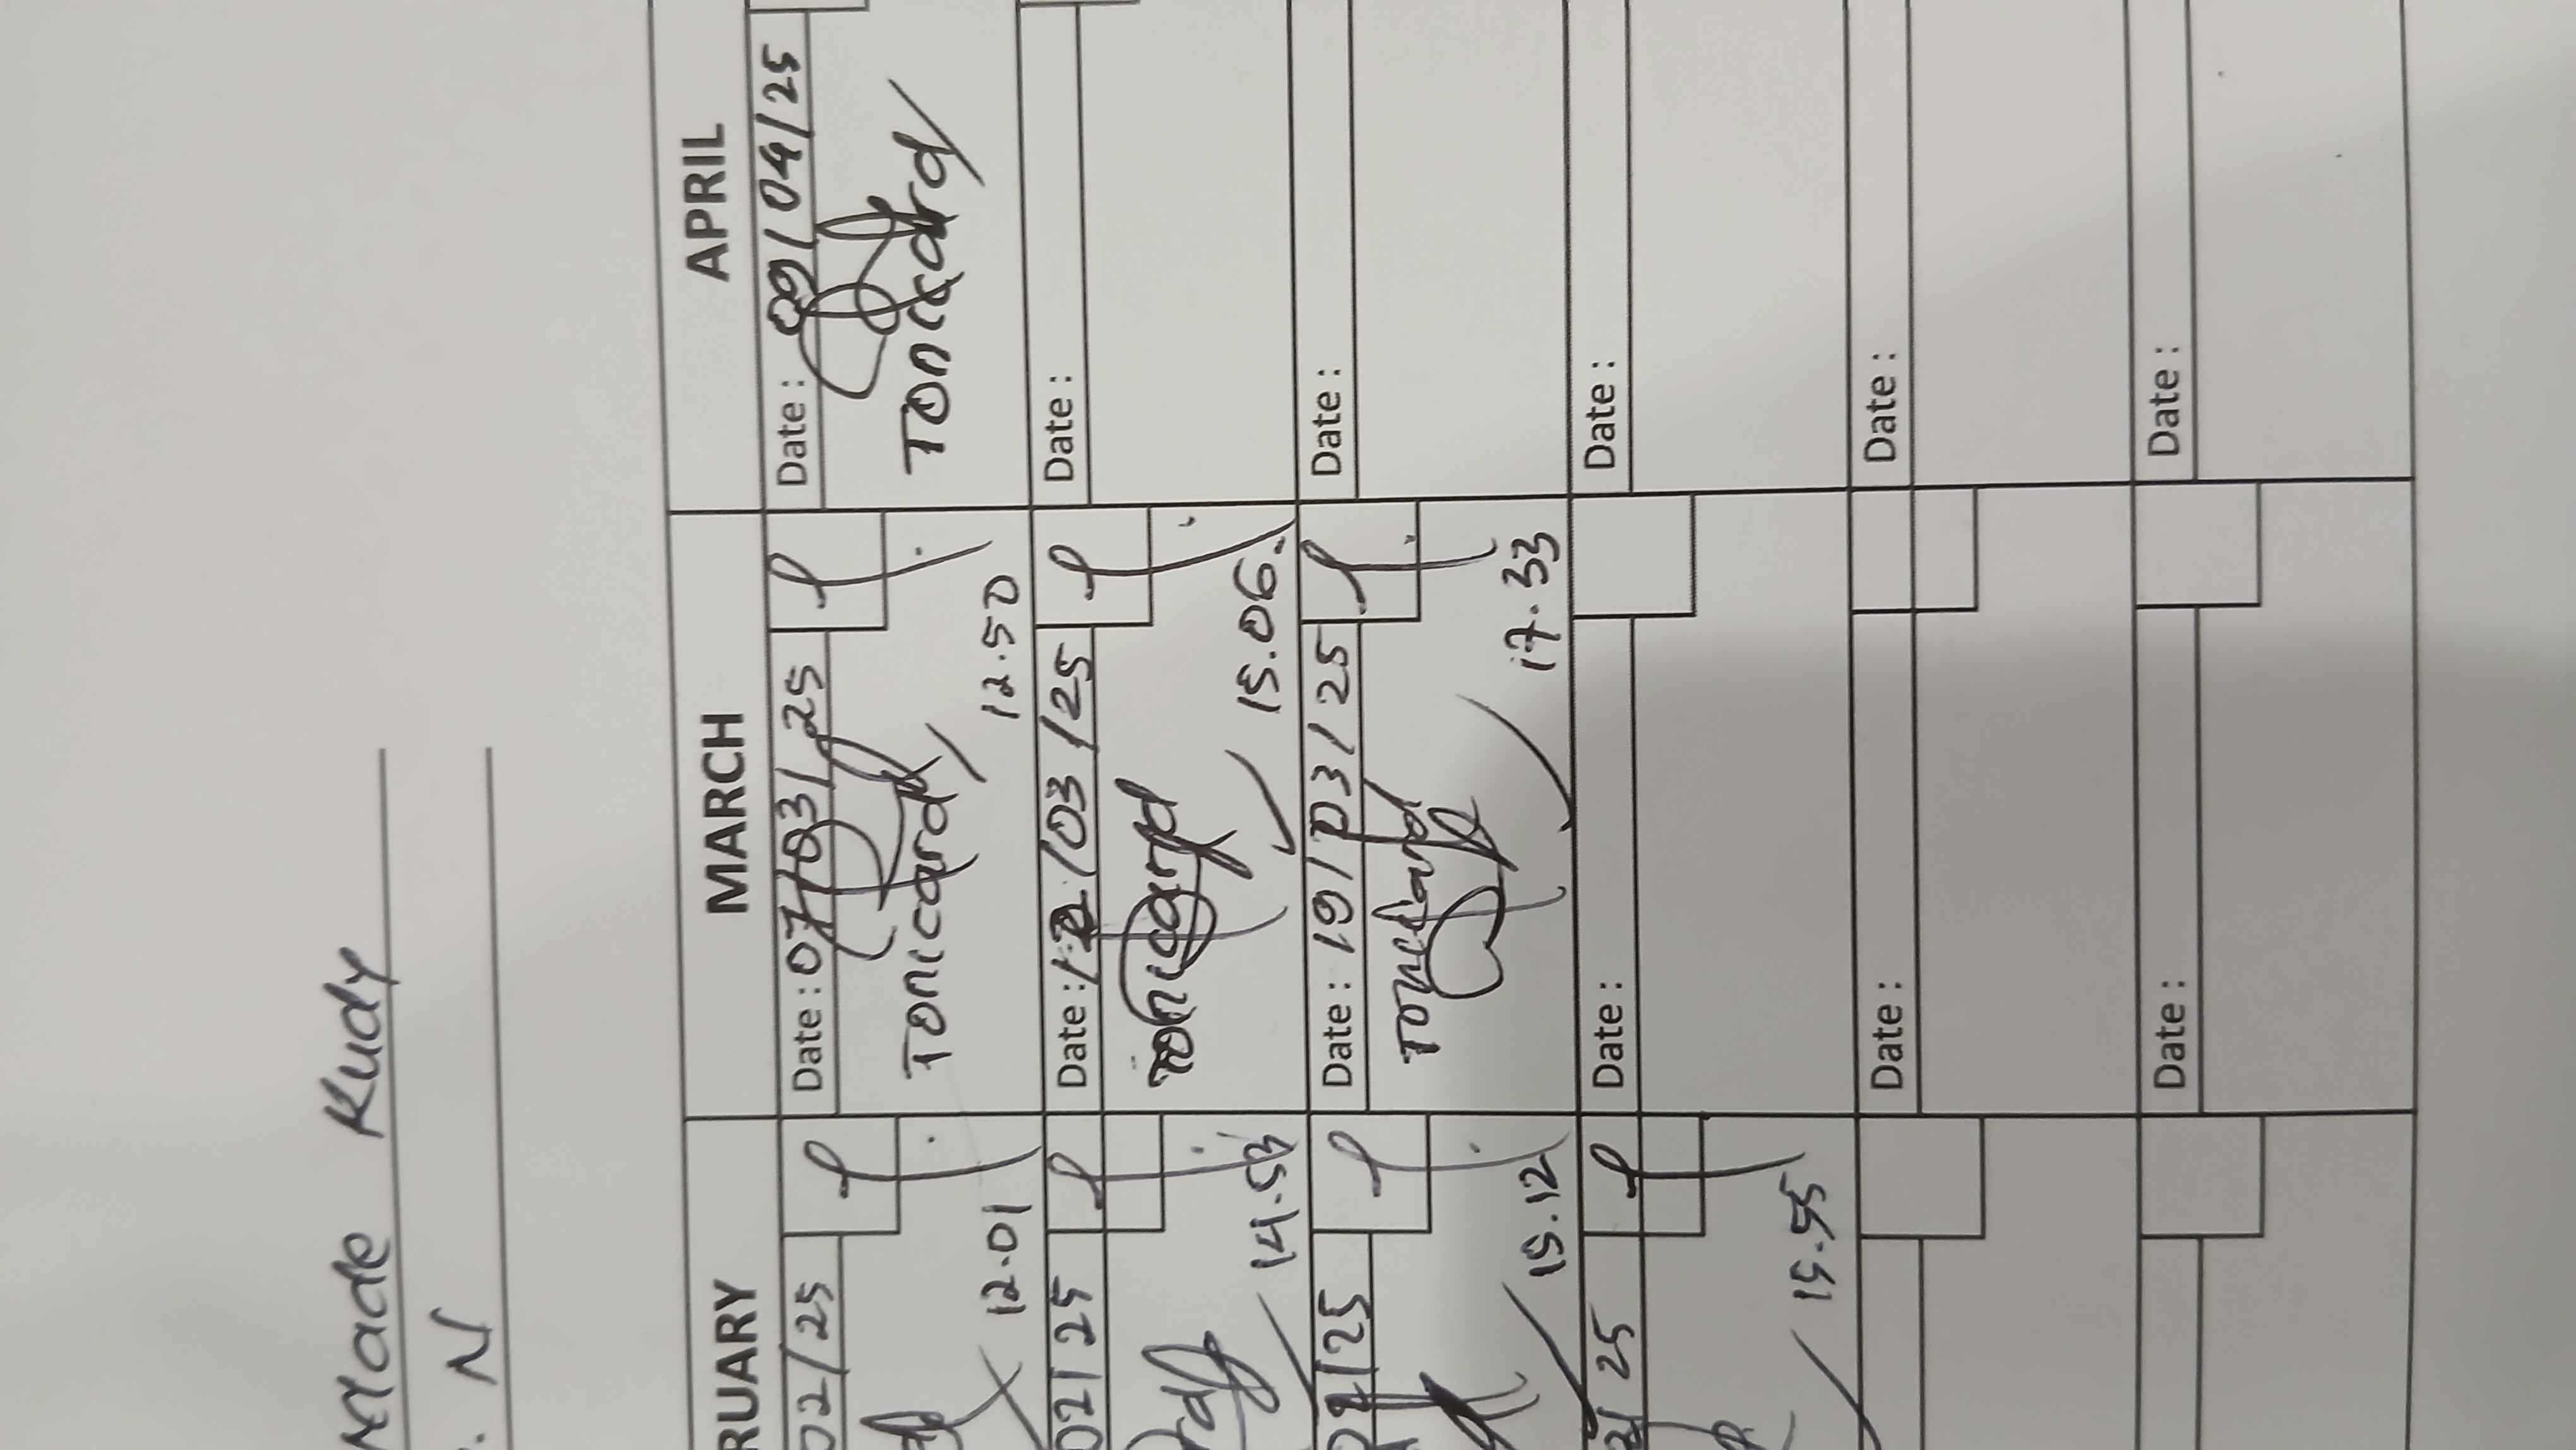 Made Rudy
N
RUARY
MARCH
APRIL
02/25
12.01
Date : 07/03/25
Tonicard
12.50
Date : 09/04/25
Tonicard
02/25
14.53
Date : 12/03/25
Tonicard
15.06
Date :
02/25
15.12
Date : 19/03/25
Tonicard
17.33
Date :
2/25
15.55
Date :
Date :
Date :
Date :
Date :
Date :